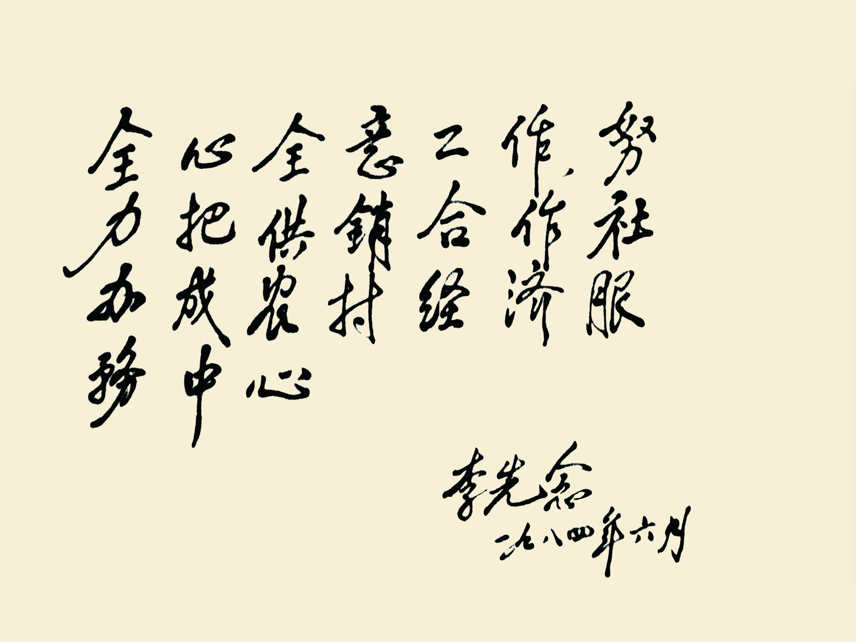 全心全意工作、努
力把供销合作社
办成农村经济服
务中心
李先念
一九八四年六月